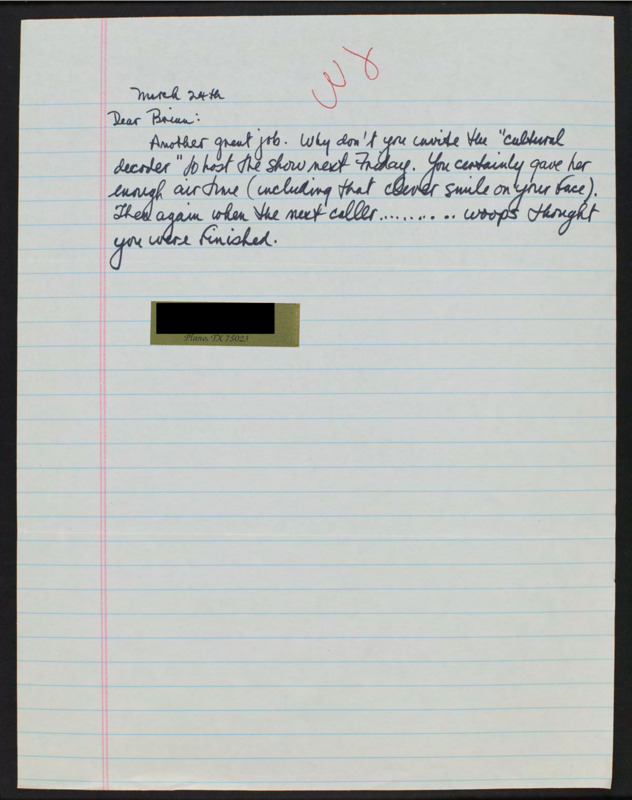 WJ
March 24th
Dear Brian:
Another great job. Why don't you invite the "cultural
decoder" to host the show next Friday. You certainly gave her
enough air time (including that clever smile on your face).
Then again when the next caller.......... woops thought
you were finished.
Plano, TX 75023